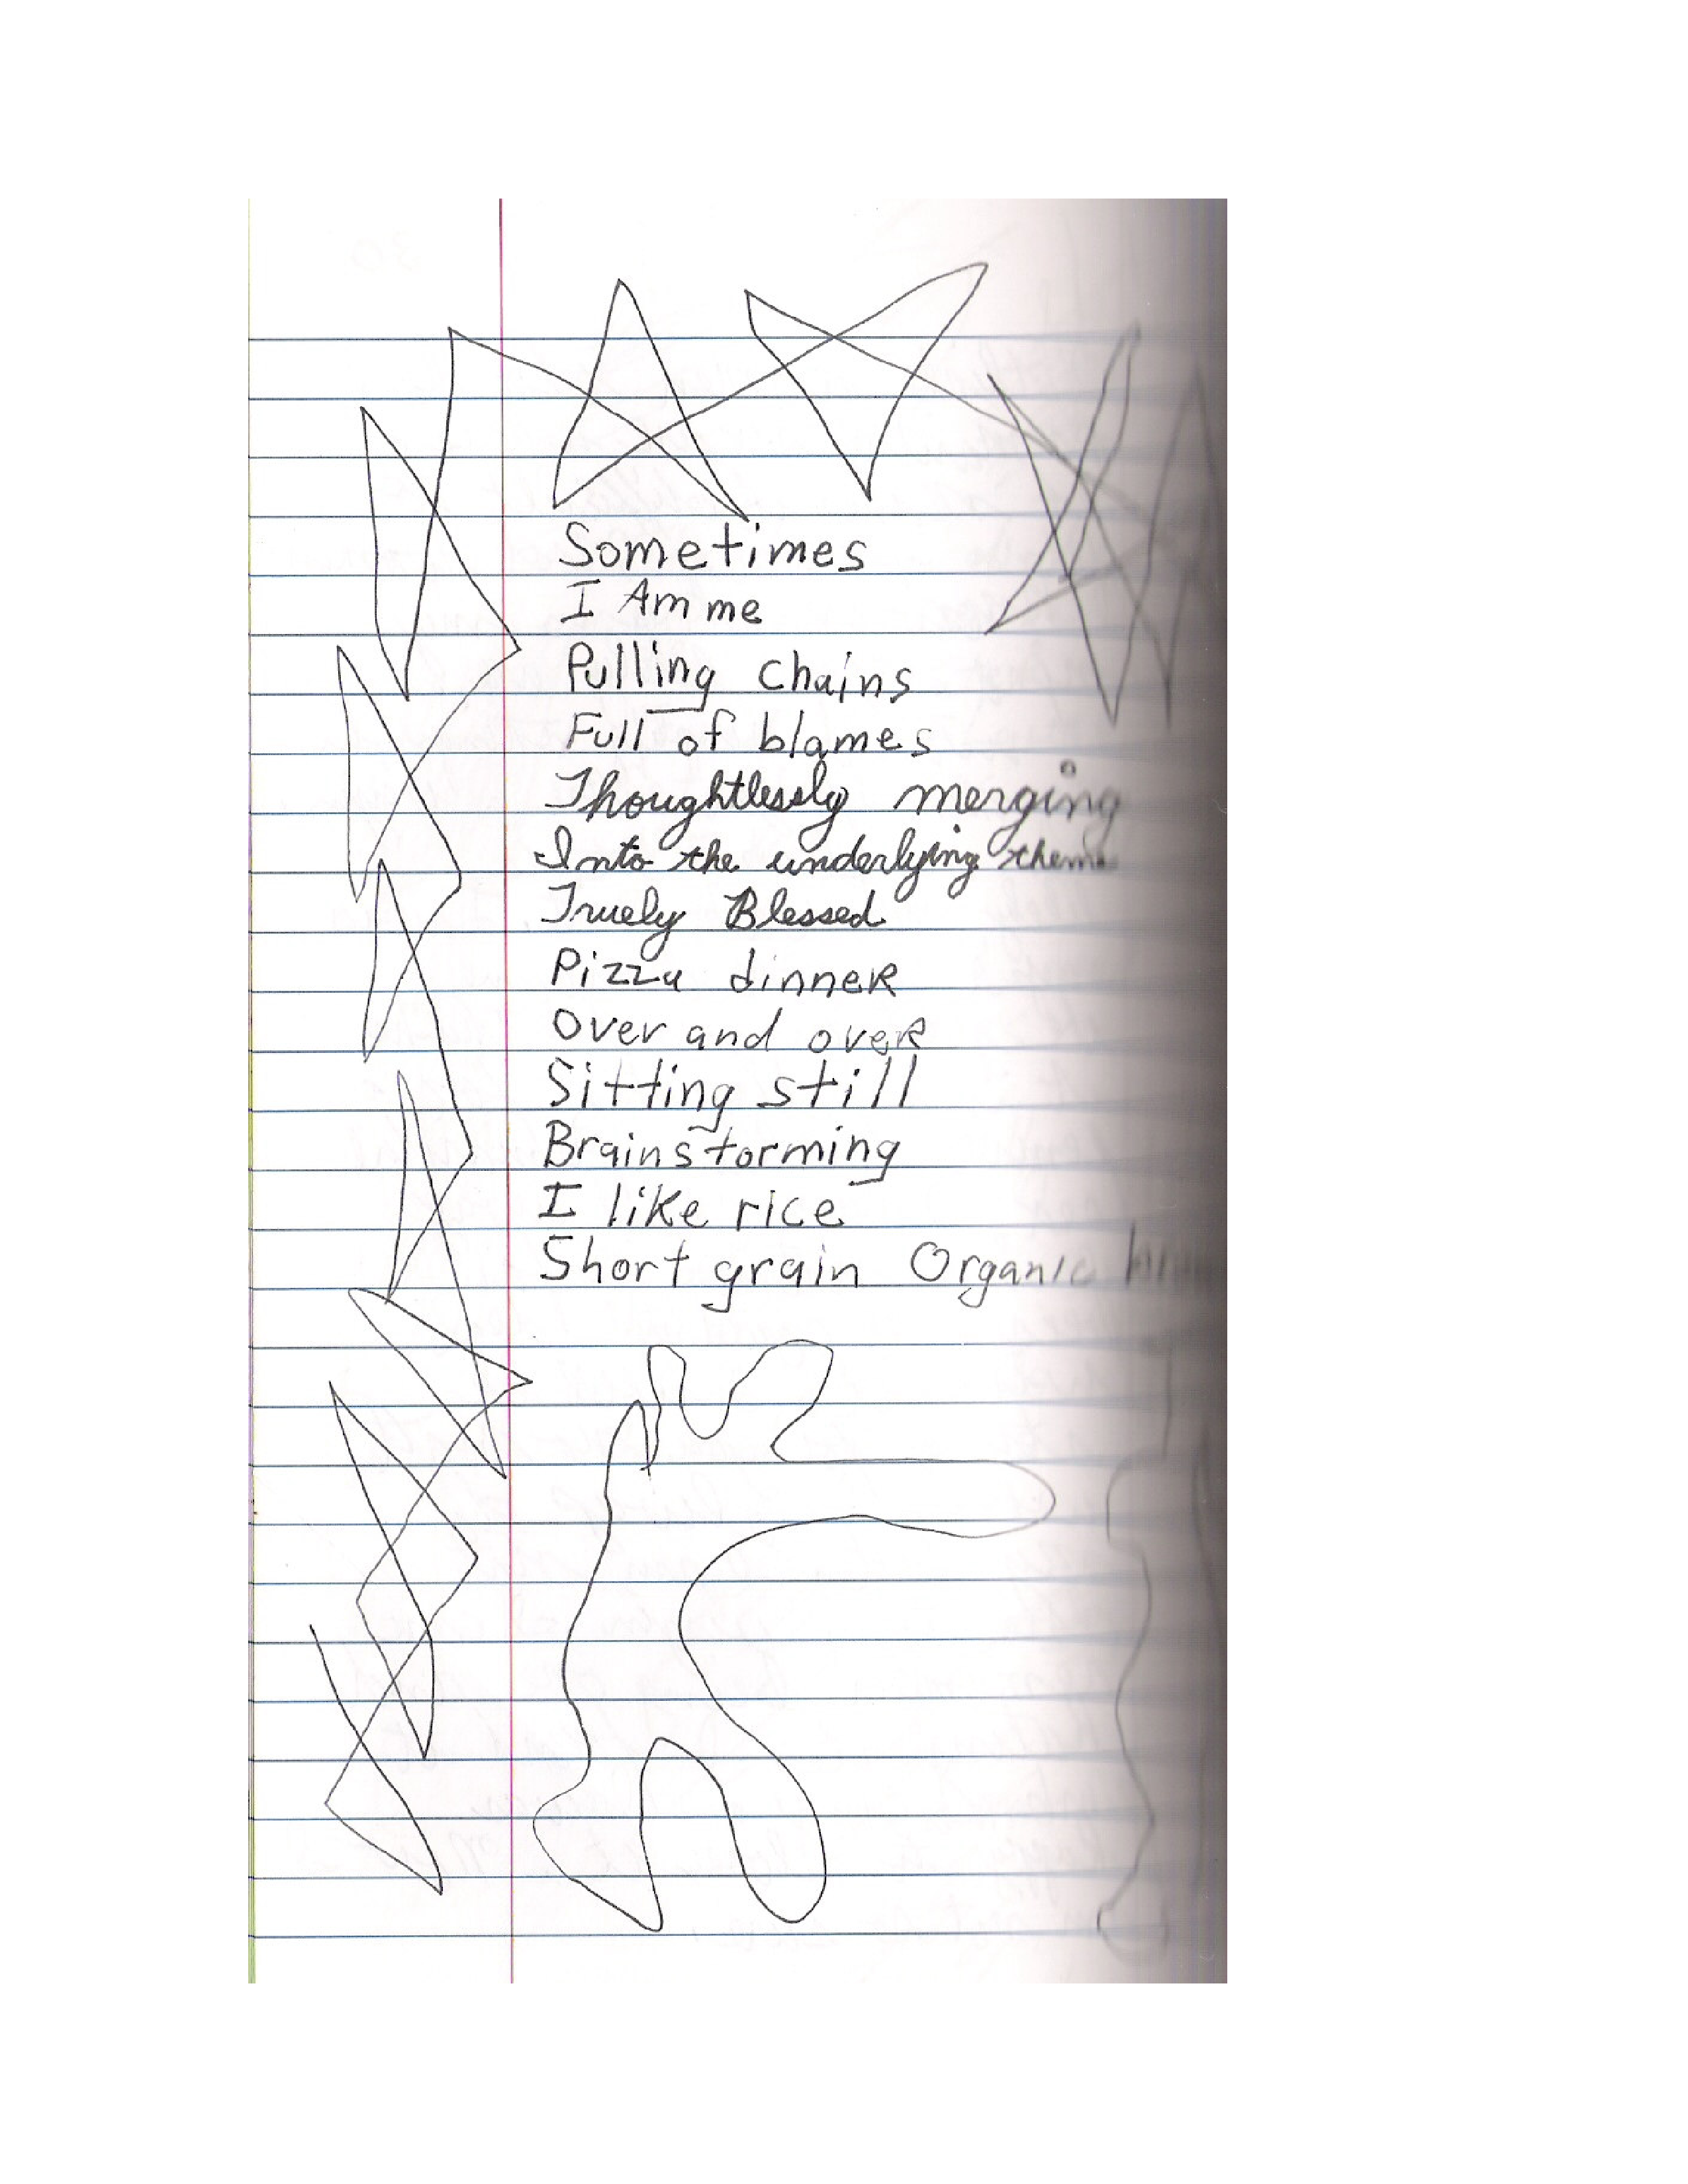 Sometimes
I Am me
Pulling chains
Full of blames
Thoughtlessly merging
Into the underlying theme
Truely Blessed
Pizza dinneR
Over and oveR
Sitting still
Brainstorming
I like rice
Short grain Organic